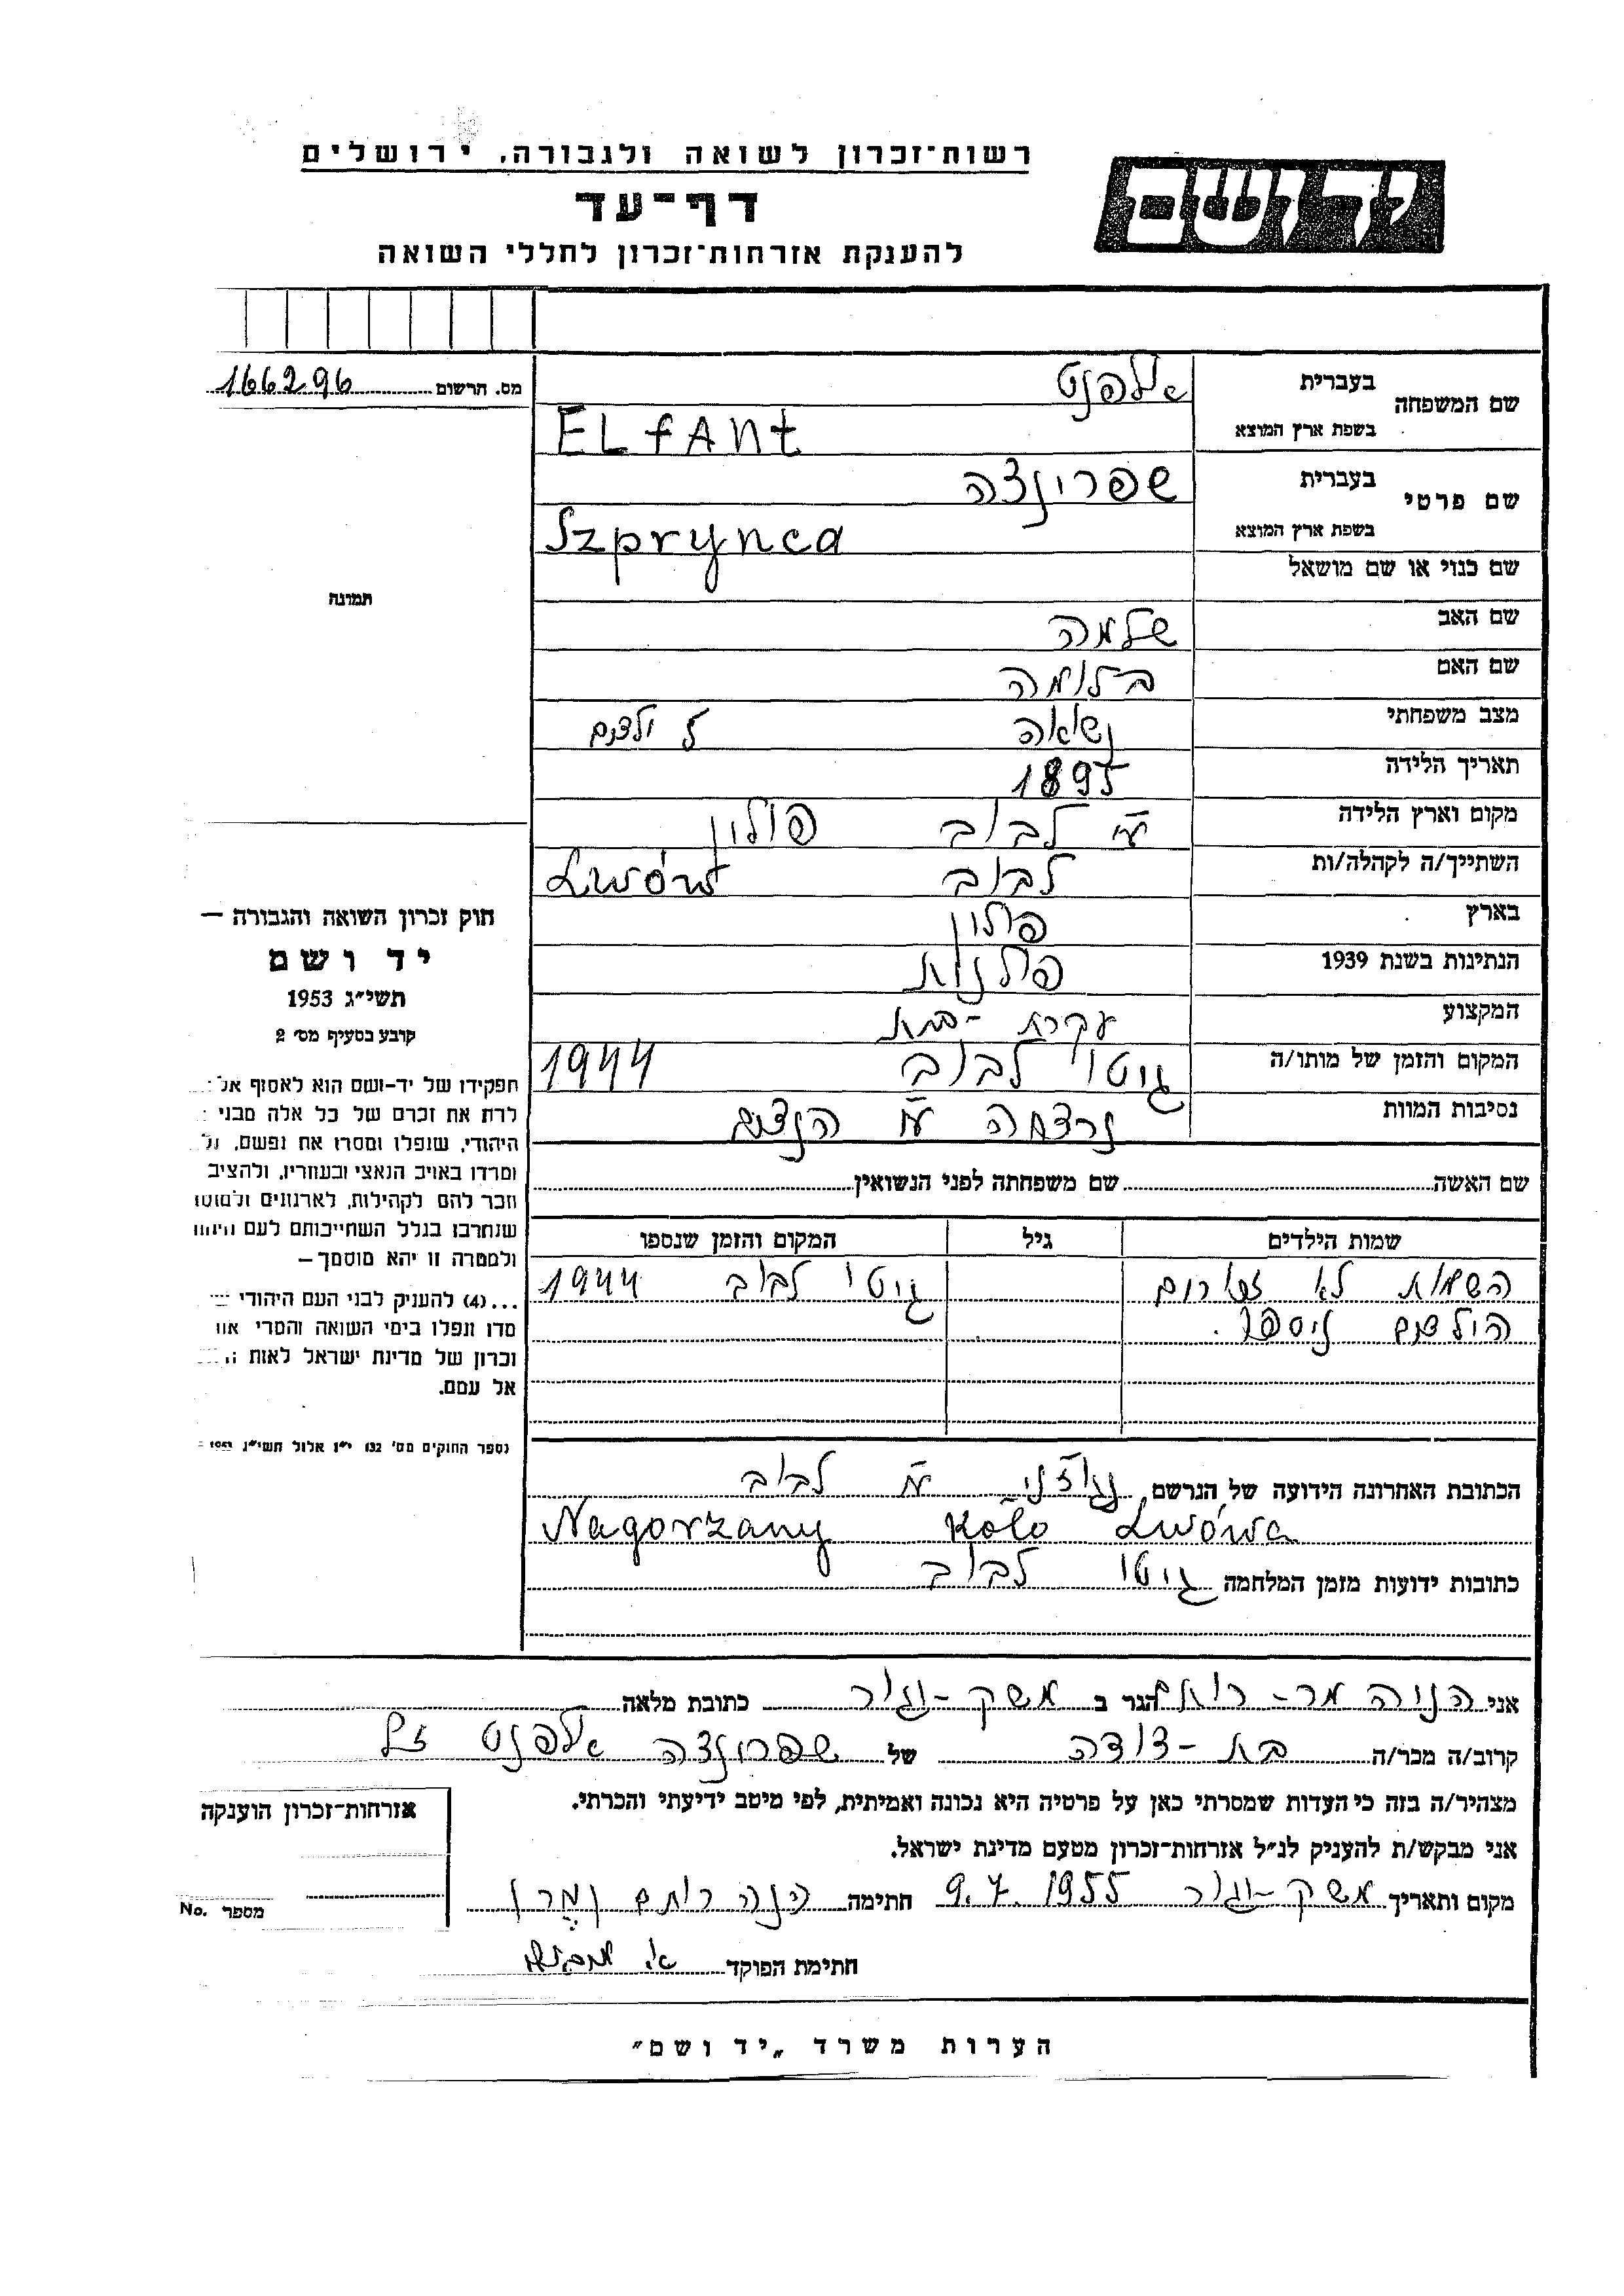 רשות־זכרון לשואה ולגבורה, ירושלים
יד ושם
דף־עד
להענקת אזרחות־זכרון לחללי השואה
מס. הרשום 166296
שם המשפחה
בעברית אלפנט
בשפת ארץ המוצא ELfAnt
שם פרטי
בעברית שפרינצה
בשפת ארץ המוצא Szprynca
שם כנוי או שם מושאל
תמונה
שם האב שלמה
שם האם בלומה
מצב משפחתי נשואה ילדים
תאריך הלידה 1895
מקום וארץ הלידה ע״י לבוב פולין
השתייך/ה לקהלה/ות לבוב Lwów
בארץ פולין
הנתינות בשנת 1939 פולנית
המקצוע עקרת-בית
המקום והזמן של מותו/ה גיטו לבוב 1944
נסיבות המוות נרצחה ע״י הנצים
שם האשה שם משפחתה לפני הנשואין
שמות הילדים גיל המקום והזמן שנספו
השמות לא זכורים גיטו לבוב 1944
הילדים ניספו.
חוק זכרון השואה והגבורה —
יד ושם
תשי״ג 1953
קובע בסעיף מס׳ 2
תפקידו של יד-ושם הוא לאסוף אל
לדת את זכרם של כל אלה מבני
היהודי, שנפלו ומסרו את נפשם,
ומרדו באויב הנאצי ובעוזריו, ולהציב
וזכר להם לקהילות, לארגונים ולמוסד
שנחרבו בגלל השתייכותם לעם היהוד
ולמטרה זו יהא מוסמך—
...(4) להעניק לבני העם היהודי
מדו ונפלו בימי השואה והמרי
זכרון של מדינת ישראל לאות
אל עמם.
נספר החוקים מס׳ 132 י״ז אלול תשי״ג 1953
הכתובת האחרונה הידועה של הנרשם ע״י לבוב
Nagorzany koło Lwówa
כתובות ידועות מזמן המלחמה גיטו לבוב
אני הניה הגר ב משק-יגור כתובת מלאה
קרוב/ה מכר/ה בת-דודה של שפרינצה אלפנט ז״ל
מצהיר/ה בזה כי העדות שמסרתי כאן על פרטיה היא נכונה ואמיתית, לפי מיטב ידיעתי והכרתי.
אני מבקש/ת להעניק לנ״ל אזרחות־זכרון מטעם מדינת ישראל.
מקום ותאריך משק-יגור 9.7.1955 חתימה
חתימת הפוקד
אזרחות־זכרון הוענקה
מספר No.
הערות משרד „יד ושם״